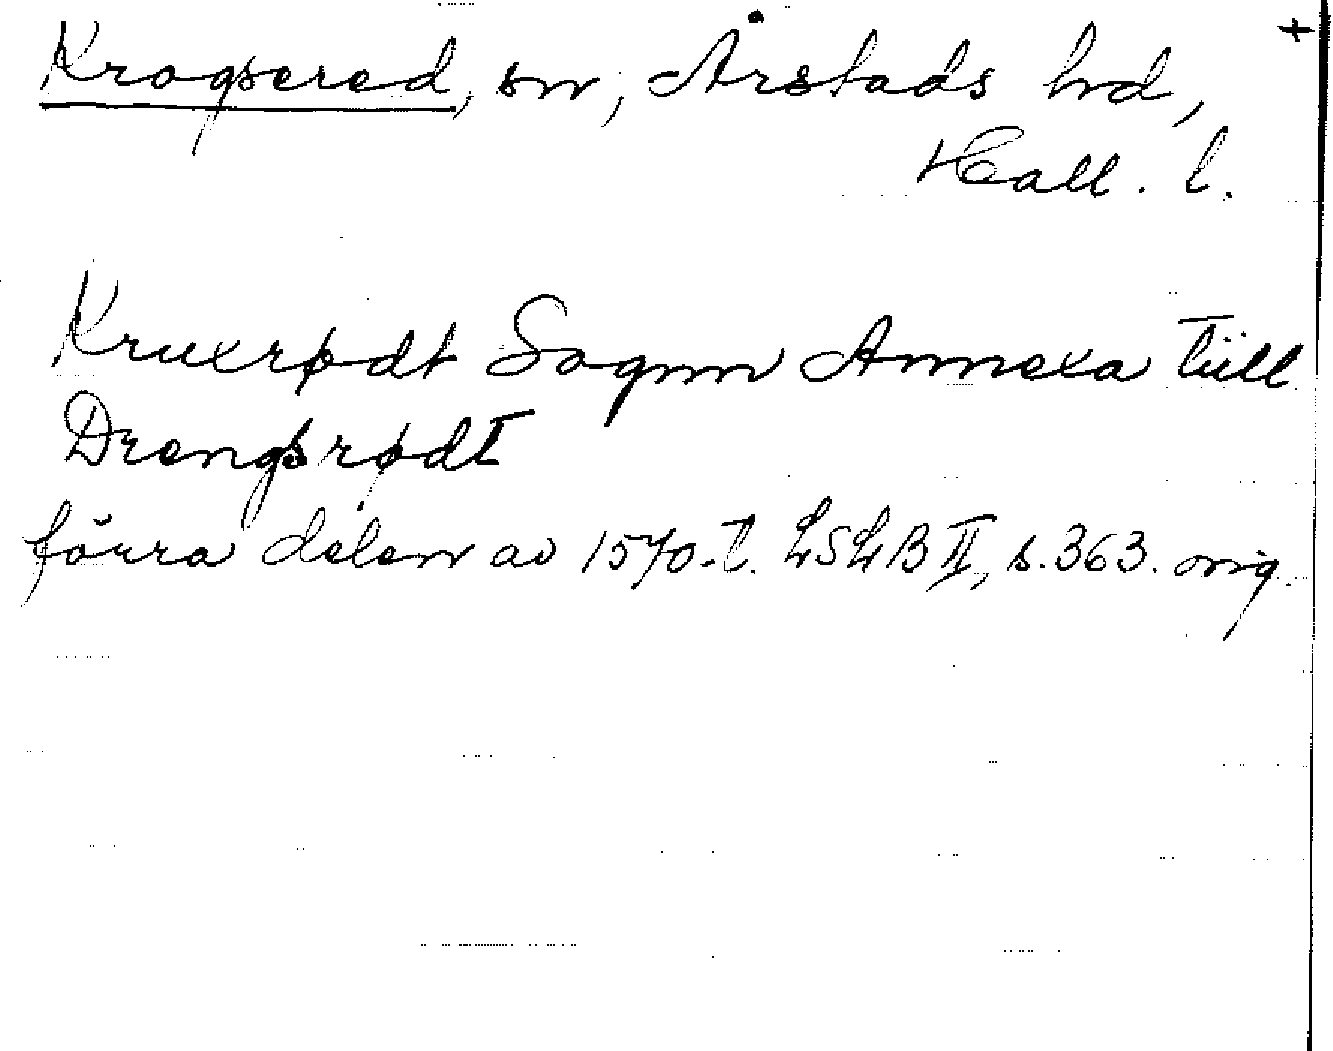 +
Krogsered, sn, Årstads hd,
Hall. l.
Kruxrødt Sognn Annexa tiill
Drengsrødt
förra delen av 1570-t. LSLB II, s. 363. orig.